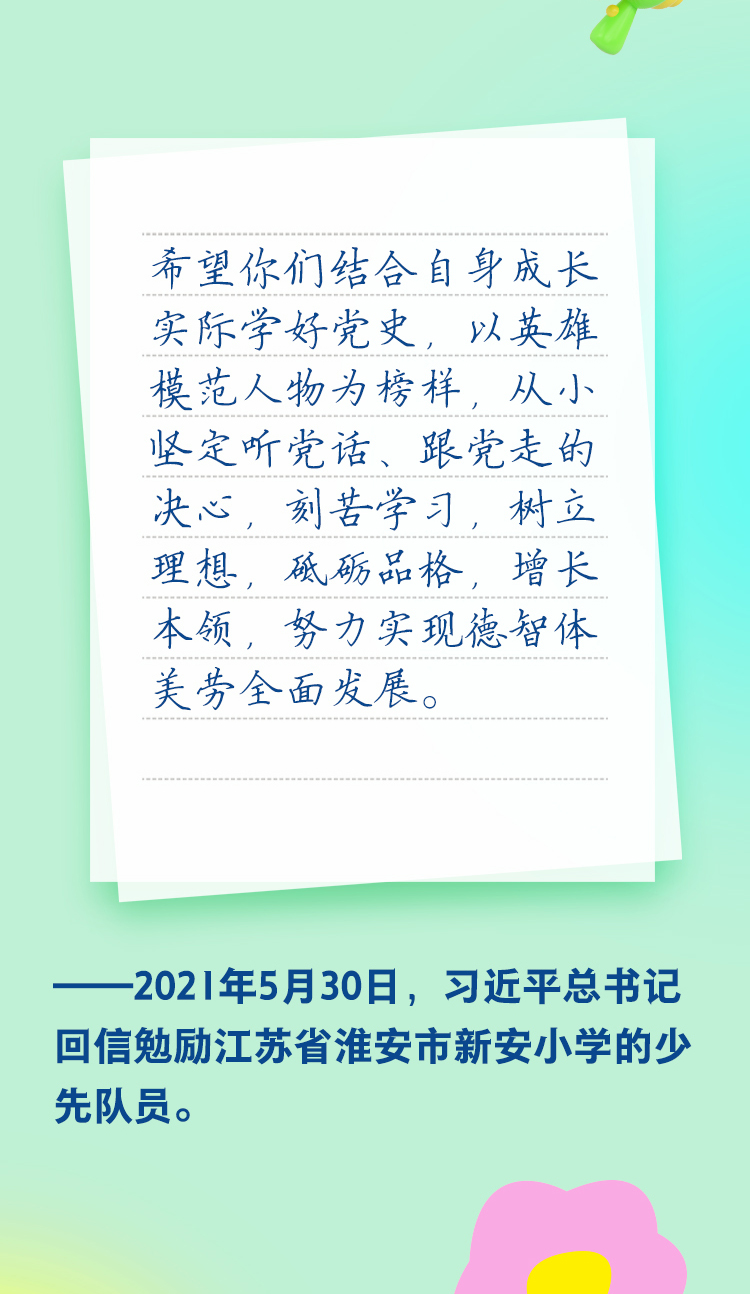 希望你们结合自身成长
实际学好党史，以英雄
模范人物为榜样，从小
坚定听党话、跟党走的
决心，刻苦学习，树立
理想，砥砺品格，增长
本领，努力实现德智体
美劳全面发展。
——2021年5月30日，习近平总书记
回信勉励江苏省淮安市新安小学的少
先队员。